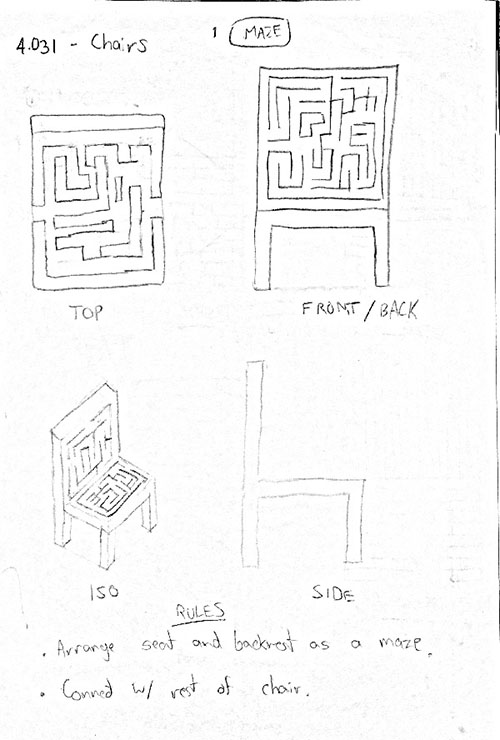 4.031 - Chairs
1 MAZE
TOP
FRONT/BACK
ISO
SIDE
RULES
. Arrange seat and backrest as a maze.
. Connect w/ rest of chair.